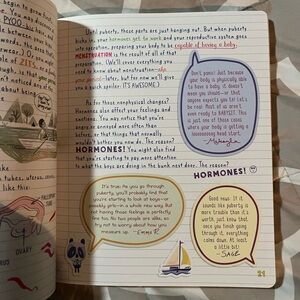 Until puberty, these parts are just hanging out. But when puberty
kicks in, your hormones get to work and your reproductive system goes
into operation, preparing your body to be capable of having a baby.
MENSTRUATION is the result of all of that
preparation. (We'll cover everything you
need to know about menstruation
later, but for now we'll give
you a quick spoiler: IT'S AWESOME.)
As for those nonphysical changes?
Hormones also affect your feelings and
emotions. You may notice that you're
angry or annoyed more often than
before, or that things that normally
wouldn't bother you now do. The reason?
HORMONES! You might also find
that you're starting to pay more attention
to the boys are doing in the bunk next door. The reason?
HORMONES!
Don't panic! Just because
your body is physically able
to have a baby, it doesn't
mean you should—or that
anyone expects you to! Let's
be real: Most of us aren't
even ready to BABYSIT. This
is just one of those cases
where your body is getting a
waaaaaay head start.
It's true: As you go through
puberty, you might find that
you're starting to look at boys—or
maybe girls—in a whole new way. But
not having those feelings is perfectly
fine too. No two people are alike, so
try not to worry about how you
measure up. -Emma R.
Good news: If it
sounds like puberty is
more trouble than it's
worth, just know that
once you finish going
through it, everything
calms down. At least
a little bit!
-SAGE
21
OVARY